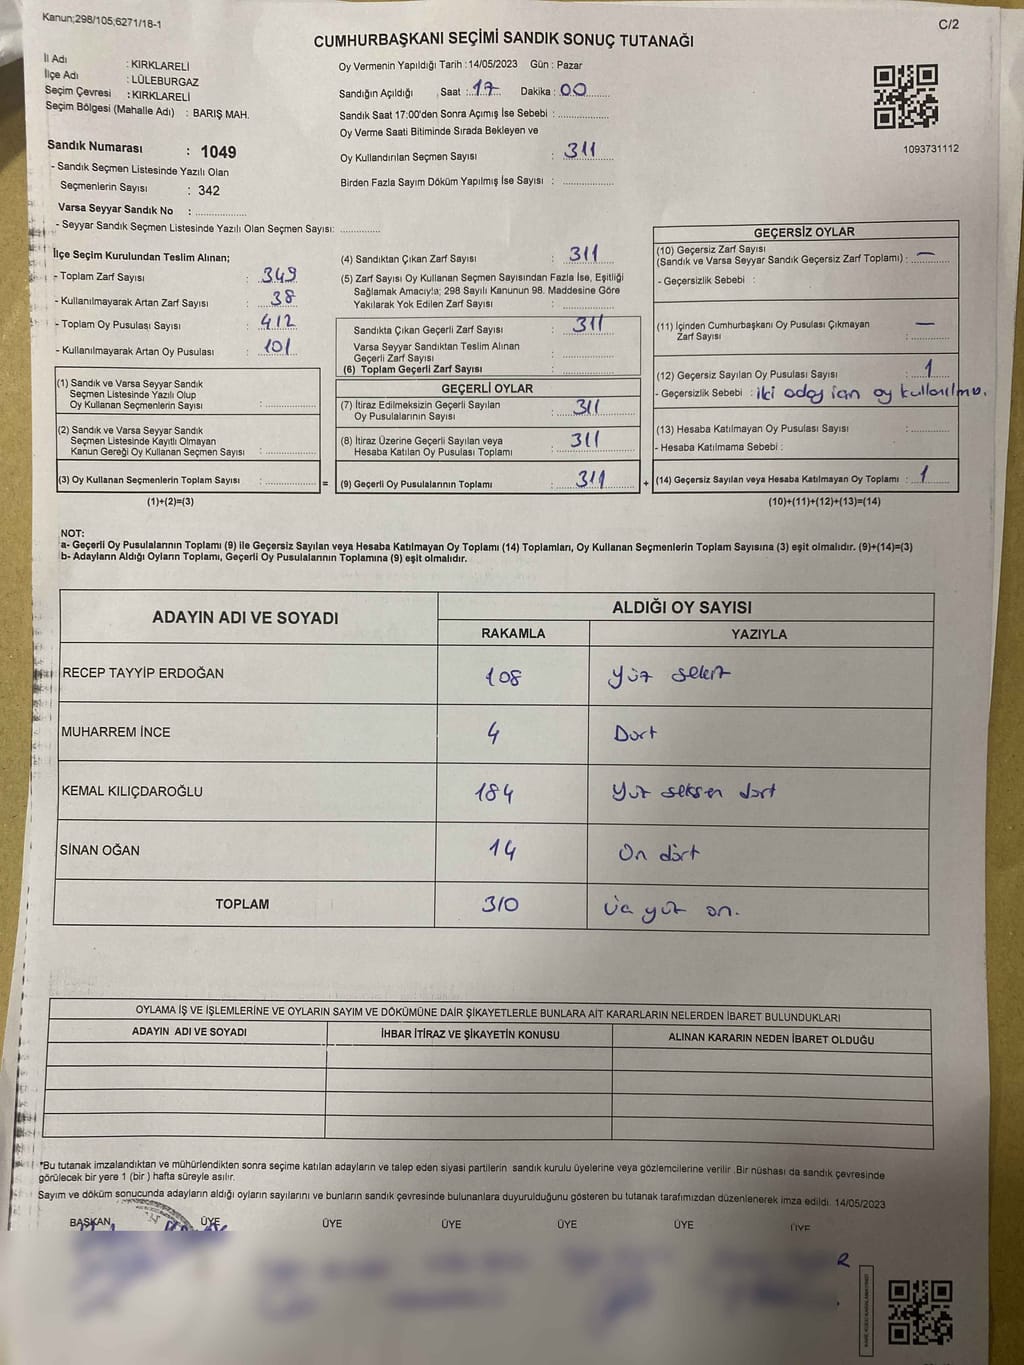 Kanun;298/105;6271/18-1
C/2
CUMHURBAŞKANI SEÇİMİ SANDIK SONUÇ TUTANAĞI
İl Adı : KIRKLARELİ
İlçe Adı : LÜLEBURGAZ
Seçim Çevresi : KIRKLARELİ
Seçim Bölgesi (Mahalle Adı) : BARIŞ MAH.
Sandık Numarası : 1049
- Sandık Seçmen Listesinde Yazılı Olan
Seçmenlerin Sayısı : 342
Varsa Seyyar Sandık No : ..................
- Seyyar Sandık Seçmen Listesinde Yazılı Olan Seçmen Sayısı: ..............
Oy Vermenin Yapıldığı Tarih :14/05/2023 Gün : Pazar
Sandığın Açıldığı Saat : 17 Dakika : 00
Sandık Saat 17:00'den Sonra Açımış İse Sebebi : ..................
Oy Verme Saati Bitiminde Sırada Bekleyen ve
Oy Kullandırılan Seçmen Sayısı : 311
Birden Fazla Sayım Döküm Yapılmış İse Sayısı : ..................
1093731112
İlçe Seçim Kurulundan Teslim Alınan;
- Toplam Zarf Sayısı : 349
- Kullanılmayarak Artan Zarf Sayısı : 38
- Toplam Oy Pusulası Sayısı : 412
- Kullanılmayarak Artan Oy Pusulası : 101
(1) Sandık ve Varsa Seyyar Sandık
Seçmen Listesinde Yazılı Olup
Oy Kullanan Seçmenlerin Sayısı : ..................
(2) Sandık ve Varsa Seyyar Sandık
Seçmen Listesinde Kayıtlı Olmayan
Kanun Gereği Oy Kullanan Seçmen Sayısı : ..................
(3) Oy Kullanan Seçmenlerin Toplam Sayısı : ..................
(1)+(2)=(3)
=
(4) Sandıktan Çıkan Zarf Sayısı : 311
(5) Zarf Sayısı Oy Kullanan Seçmen Sayısından Fazla İse, Eşitliği
Sağlamak Amacıyla; 298 Sayılı Kanunun 98. Maddesine Göre
Yakılarak Yok Edilen Zarf Sayısı : ..................
Sandıkta Çıkan Geçerli Zarf Sayısı : 311
Varsa Seyyar Sandıktan Teslim Alınan
Geçerli Zarf Sayısı : ..................
(6) Toplam Geçerli Zarf Sayısı : ..................
GEÇERLİ OYLAR
(7) İtiraz Edilmeksizin Geçerli Sayılan
Oy Pusulalarının Sayısı : 311
(8) İtiraz Üzerine Geçerli Sayılan veya
Hesaba Katılan Oy Pusulası Toplamı : 311
(9) Geçerli Oy Pusulalarının Toplamı : 311
+
GEÇERSİZ OYLAR
(10) Geçersiz Zarf Sayısı
(Sandık ve Varsa Seyyar Sandık Geçersiz Zarf Toplamı) : —
- Geçersizlik Sebebi :
(11) İçinden Cumhurbaşkanı Oy Pusulası Çıkmayan
Zarf Sayısı : —
(12) Geçersiz Sayılan Oy Pusulası Sayısı : 1
- Geçersizlik Sebebi : iki aday için oy kullanılmış.
(13) Hesaba Katılmayan Oy Pusulası Sayısı : ..................
- Hesaba Katılmama Sebebi :
(14) Geçersiz Sayılan veya Hesaba Katılmayan Oy Toplamı : 1
(10)+(11)+(12)+(13)=(14)
NOT:
a- Geçerli Oy Pusulalarının Toplamı (9) ile Geçersiz Sayılan veya Hesaba Katılmayan Oy Toplamı (14) Toplamları, Oy Kullanan Seçmenlerin Toplam Sayısına (3) eşit olmalıdır. (9)+(14)=(3)
b- Adayların Aldığı Oyların Toplamı, Geçerli Oy Pusulalarının Toplamına (9) eşit olmalıdır.
ADAYIN ADI VE SOYADI
ALDIĞI OY SAYISI
RAKAMLA YAZIYLA
RECEP TAYYİP ERDOĞAN 108 Yüz sekiz
MUHARREM İNCE 4 Dört
KEMAL KILIÇDAROĞLU 184 Yüz seksen dört
SİNAN OĞAN 14 On dört
TOPLAM 310 Üç yüz on.
OYLAMA İŞ VE İŞLEMLERİNE VE OYLARIN SAYIM VE DÖKÜMÜNE DAİR ŞİKAYETLERLE BUNLARA AİT KARARLARIN NELERDEN İBARET BULUNDUKLARI
ADAYIN ADI VE SOYADI İHBAR İTİRAZ VE ŞİKAYETİN KONUSU ALINAN KARARIN NEDEN İBARET OLDUĞU
*Bu tutanak imzalandıktan ve mühürlendikten sonra seçime katılan adayların ve talep eden siyasi partilerin sandık kurulu üyelerine veya gözlemcilerine verilir .Bir nüshası da sandık çevresinde
görülecek bir yere 1 (bir ) hafta süreyle asılır.
Sayım ve döküm sonucunda adayların aldığı oyların sayılarını ve bunların sandık çevresinde bulunanlara duyurulduğunu gösteren bu tutanak tarafımızdan düzenlenerek imza edildi. 14/05/2023
BAŞKAN ÜYE ÜYE ÜYE ÜYE ÜYE ÜYE